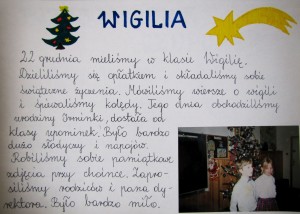 WIGILIA
22 grudnia mieliśmy w klasie Wigilię.
Dzieliliśmy się opłatkiem i składaliśmy sobie
świąteczne życzenia. Mówiliśmy wiersze o wigilii
i śpiewaliśmy kolędy. Tego dnia obchodziliśmy
urodziny Irminki, dostała od
klasy upominek. Było bardzo
dużo słodyczy i napojów.
Robiliśmy sobie pamiątkowe
zdjęcia przy choince. Zapro-
siliśmy rodziców i pana dy-
rektora. Było bardzo miło.